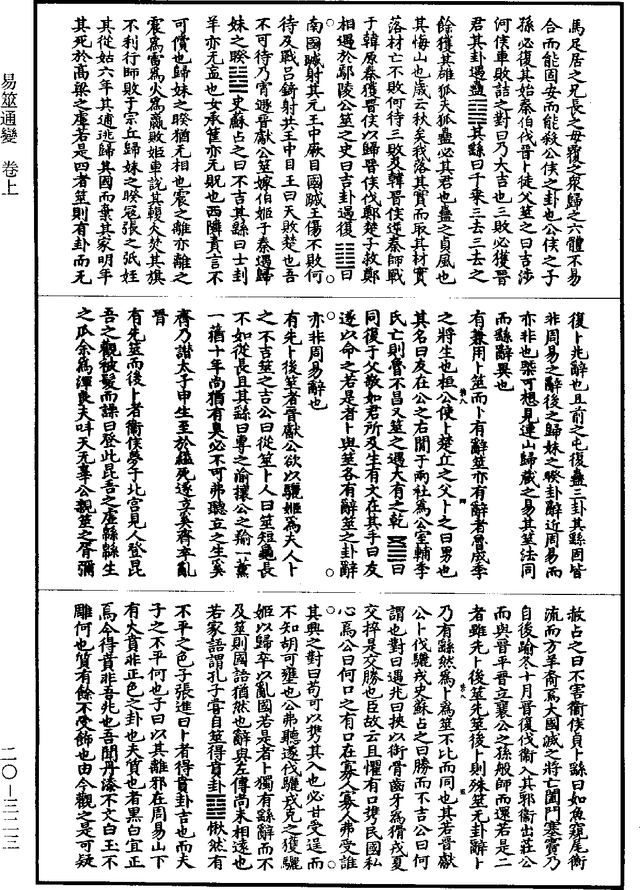 馬足居之兄長之毋覆之衆歸之六體不易
合而能固安而能殺公侯之卦也公侯之子
孫必復其始秦伯伐晉卜徒父筮之曰吉涉
何侯車敗詰之對曰乃大吉也三敗必獲晉
君其卦遇蠱䷑其繇曰千乘三去三去之
餘獲其雄狐夫狐蠱必其君也蠱之貞風也
其悔山也歲云秋矣我落其實而取其材實
落材亡不敗何待三敗及韓晉侯逆秦師戰
于韓原秦獲晉侯以歸晉侯伐鄭楚子救鄭
相遇於鄢陵公筮之史曰吉卦遇復䷗曰
南國䠞射其元王中厥目國䠞王傷不敗何
待及戰呂錡射共王中目王曰天敗楚也吾
不可待乃宵遯晉獻公筮嫁伯姬于秦遇歸
妹之睽史蘇占之曰不吉其繇曰士刲
羊亦无衁也女承筐亦无貺也西隣責言不
可償也歸妹之睽猶无相也震之離亦離之
震爲雷爲火爲嬴敗姬車說其輹火焚其旗
不利行師敗于宗丘歸妹之睽寇張之弧姪
其從姑六年其逋逃歸其國而棄其家明年
其死於高梁之虛若是四者筮則有卦而无
復卜兆辭也且前之屯復蠱三卦其繇固皆
非周易之辭後之歸妹之睽卦辭近周易而
亦非也槩可想見連山歸藏之易其筮法同
而繇辭異也
有兼用卜筮而卜有辭筮亦有辭者魯成季
之將生也桓公使卜楚丘之父卜之曰男也
其名曰友在公之右間于兩社爲公室輔季
氏亡則魯不昌又筮之遇大有之乾曰
同復于父敬如君所及生有文在其手曰友
遂以命之若是者卜與筮各有辭筮之卦辭
亦非周易辭也
有先卜後筮者晉獻公欲以驪姬爲夫人卜
之不吉筮之吉公曰從筮卜人曰筮短龜長
不如從長且其繇曰專之渝攘公之羭一薰
一蕕十年尚猶有臭必不可弗聽立之生奚
齊乃譖太子申生至於縊死遂立奚齊卒亂
晉
有先筮而後卜者衞侯夢于北宮見人登昆
吾之觀被髮而譟曰登此昆吾之虛緜緜生
之瓜余爲渾良夫叫天无辜公親筮之胥彌
赦占之曰不害衞侯貞卜繇曰如魚竀尾衡
流而方羊裔焉大國滅之將亡闔門塞竇乃
自後踰冬十月晉復伐衞入其郛衞出莊公
而與晉平晉立襄公之孫般師而還若是二
者雖先卜後筮先筮後卜則殊筮无卦辭卜
乃有繇然爲卜爲筮不比而同也其若晉獻
公卜伐驪戎史蘇占之曰勝而不吉公曰何
謂也對曰遇兆曰挾以銜骨齒牙爲猾戎夏
交捽是交勝也臣故云且懼有口攜民國私
心焉公曰何口之有口在寡人寡人弗受誰
其興之對曰苟可以攜其入也必甘受逞而
不知胡可壅也公弗聽遂伐驪戎克之獲驪
姬以歸卒以亂國若是者卜獨有繇辭而不
及筮則國語猶然也辭與左傳尚未相遠也
若家語謂孔子嘗自筮得賁卦䷕愀然有
不平之色子張進曰卜者得賁卦吉也而夫
子之不平何也子曰以其離邪在周易山下
有火賁非正色之卦也夫質也者黑白宜正
焉今得賁非吾兆也吾聞丹漆不文白玉不
雕何也質有餘不受飾也由今觀之是可疑
易筮通變　卷上
二〇－三一二三